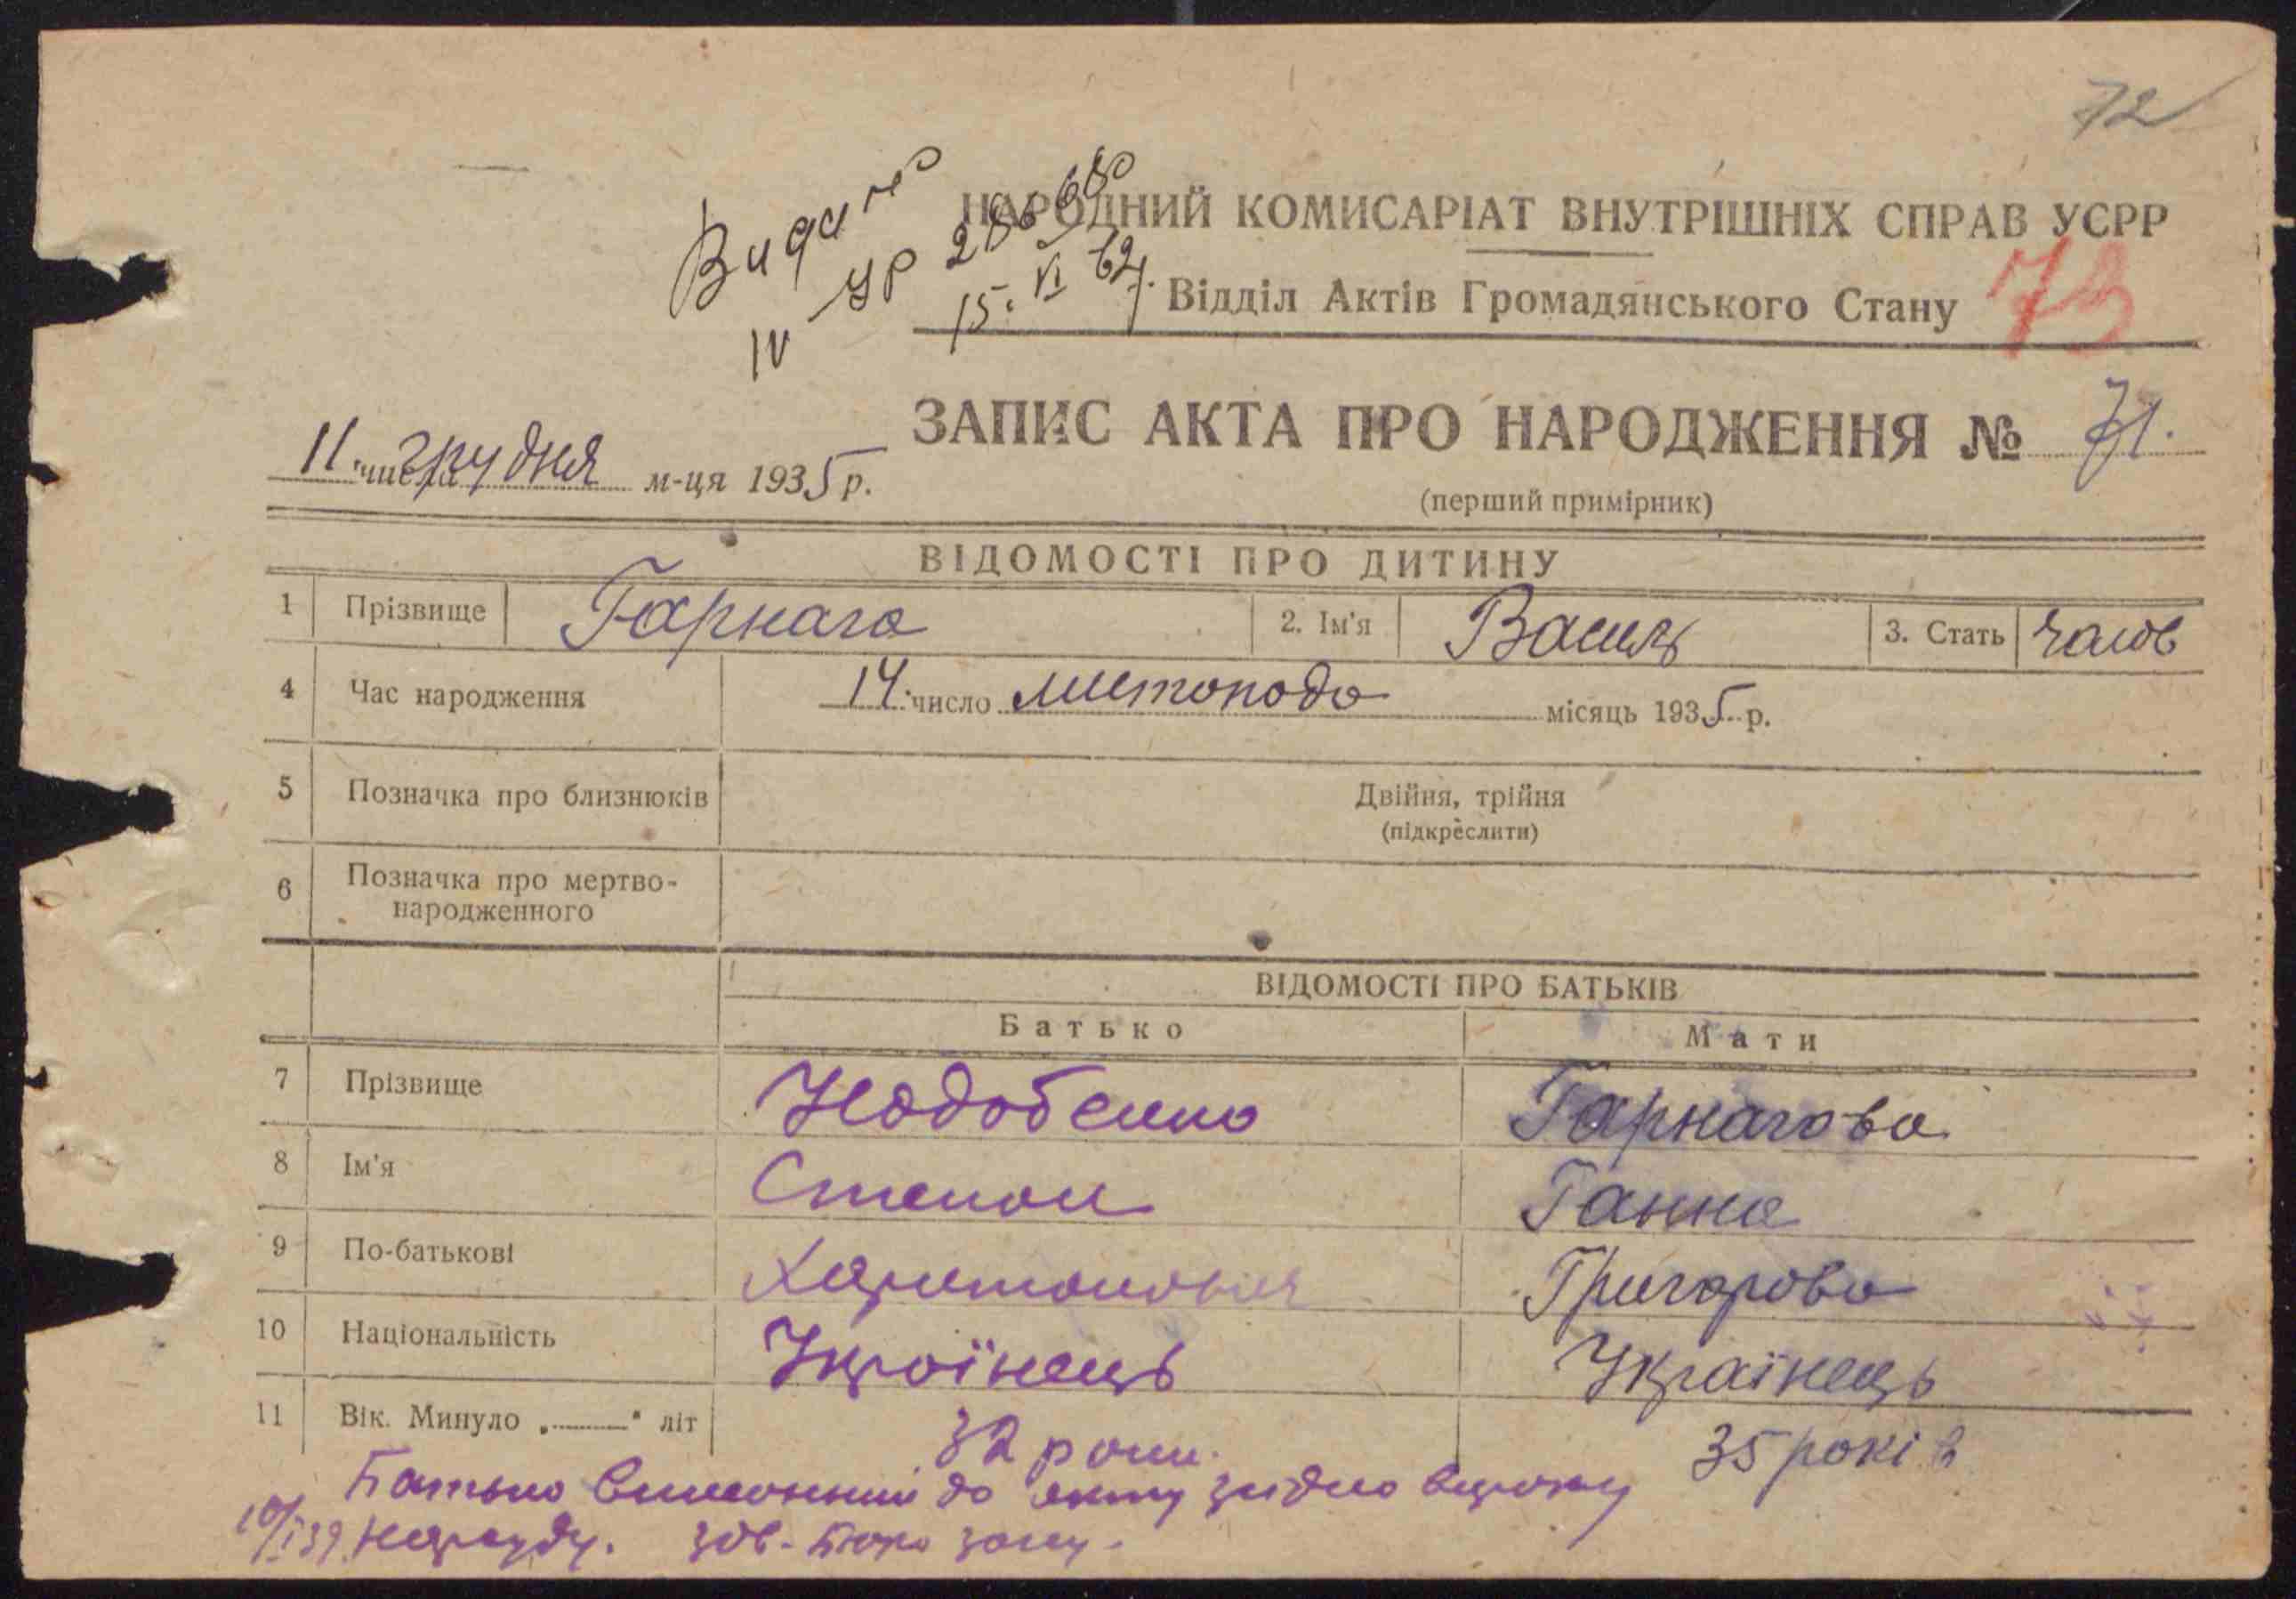 72
Видано
IV УР 286680
15. VI 62 р.
НАРОДНИЙ КОМИСАРІАТ ВНУТРІШНІХ СПРАВ УСРР
Відділ Актів Громадянського Стану 73
ЗАПИС АКТА ПРО НАРОДЖЕННЯ № 71.
11 числа грудня м-ця 1935 р.
(перший примірник)
ВІДОМОСТІ ПРО ДИТИНУ
1 Прізвище Гарнага 2. Ім'я Василь 3. Стать чолов
4 Час народження 14 число листопада місяць 1935 р.
5 Позначка про близнюків Двійня, трійня
(підкреслити)
6 Позначка про мертво-
народженного
ВІДОМОСТІ ПРО БАТЬКІВ
Батько Мати
7 Прізвище Надобенко Гарнагова
8 Ім'я Степан Ганна
9 По-батькові Харитонович Григорова
10 Національність Українець Українець
11 Вік. Минуло „ “ літ 32 роки. 35 років
Батько до акту згідно вироку
10/I 39 Нарсуду. зав. бюро